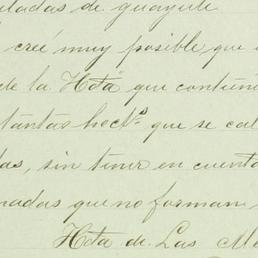 eladas de guayule
creé muy posible que
de la Hdtā que contien
tantas hectˢ que se cal
as, sin tener en cuenta
nadas que no forman
Hda de Las Me